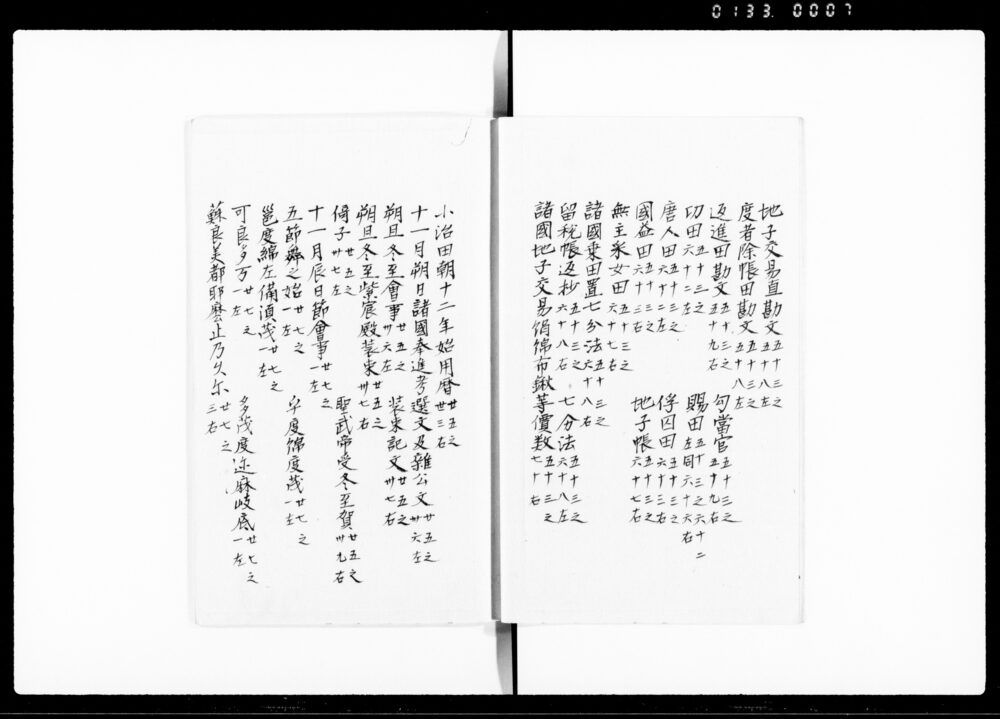 0133 0007
地子交易直勘文 五十三之五十八左
度者除帳田勘文 五十三之五十八左
返進田勘文 五十三之五十九右　勾當官 五十三之五十九右
功田 五十三之六十二左　賜田 五十三之六十二左同六十六右
唐人田 五十三之六十二左　俘囚田 五十三之六十三右
國益田 五十三之六十三右　地子帳 五十三之六十七右
無主采女田 五十三之六十七右
諸國乗田置七分法 五十三之六十八右
留税帳返抄 五十三之六十八右　七分法 五十三之六十八左
諸國地子交易絹綿布鍬等價数 五十三之七十右
小治田朝十二年始用曆 廿五之卅三右
十一月朔日諸國奉進考選文及雜公文 廿五之卅六左
朔旦冬至會事 廿五之卅六左　装束記文 廿五之卅七右
朔旦冬至紫宸殿装束 廿五之卅七右
倚子 廿五之卅七左　聖武帝受冬至賀 廿五之卅九右
十一月辰日節會事 廿七之一左
五節舞之始 廿七之一左　度綿度茂 廿七之一左
邕度綿左備湏茂 廿七之一左
可良多万 廿七之一左　多茂度迩麻岐底 廿七之一左
蘇良美都耶麽止乃久尓 廿七之三右